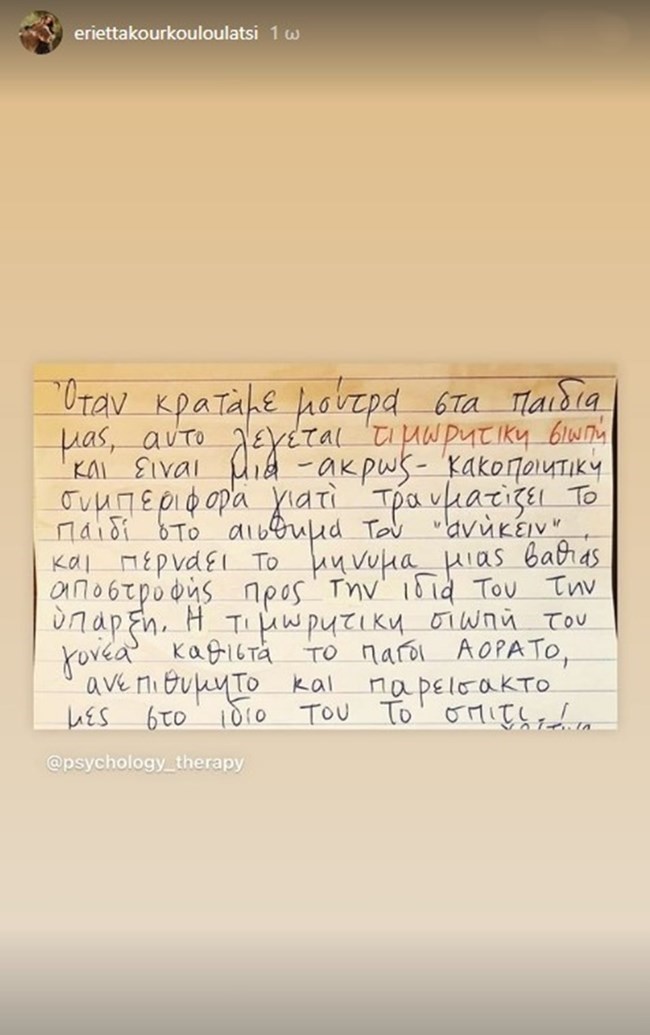 eriettakourkouloulatsi 1 ω
Όταν κρατάμε μούτρα στα παιδια
μας, αυτο λεγεται τιμωρητικη σιωπή
και ειναι μια -ακρως- κακοποιητική
συμπεριφορα γιατί τραυματίζει το
παιδί στο αισθημα του "ανήκειν",
και περνάει το μηνυμα μιας βαθιας
αποστροφής προς την ιδια του την
ύπαρξη. Η τιμωρητικη σιωπή του
γονέα καθιστά το παιδι ΑΟΡΑΤΟ,
ανεπιθυμητο και παρεισακτο
μες στο ιδιο του το σπιτι.!
@psychology_therapy